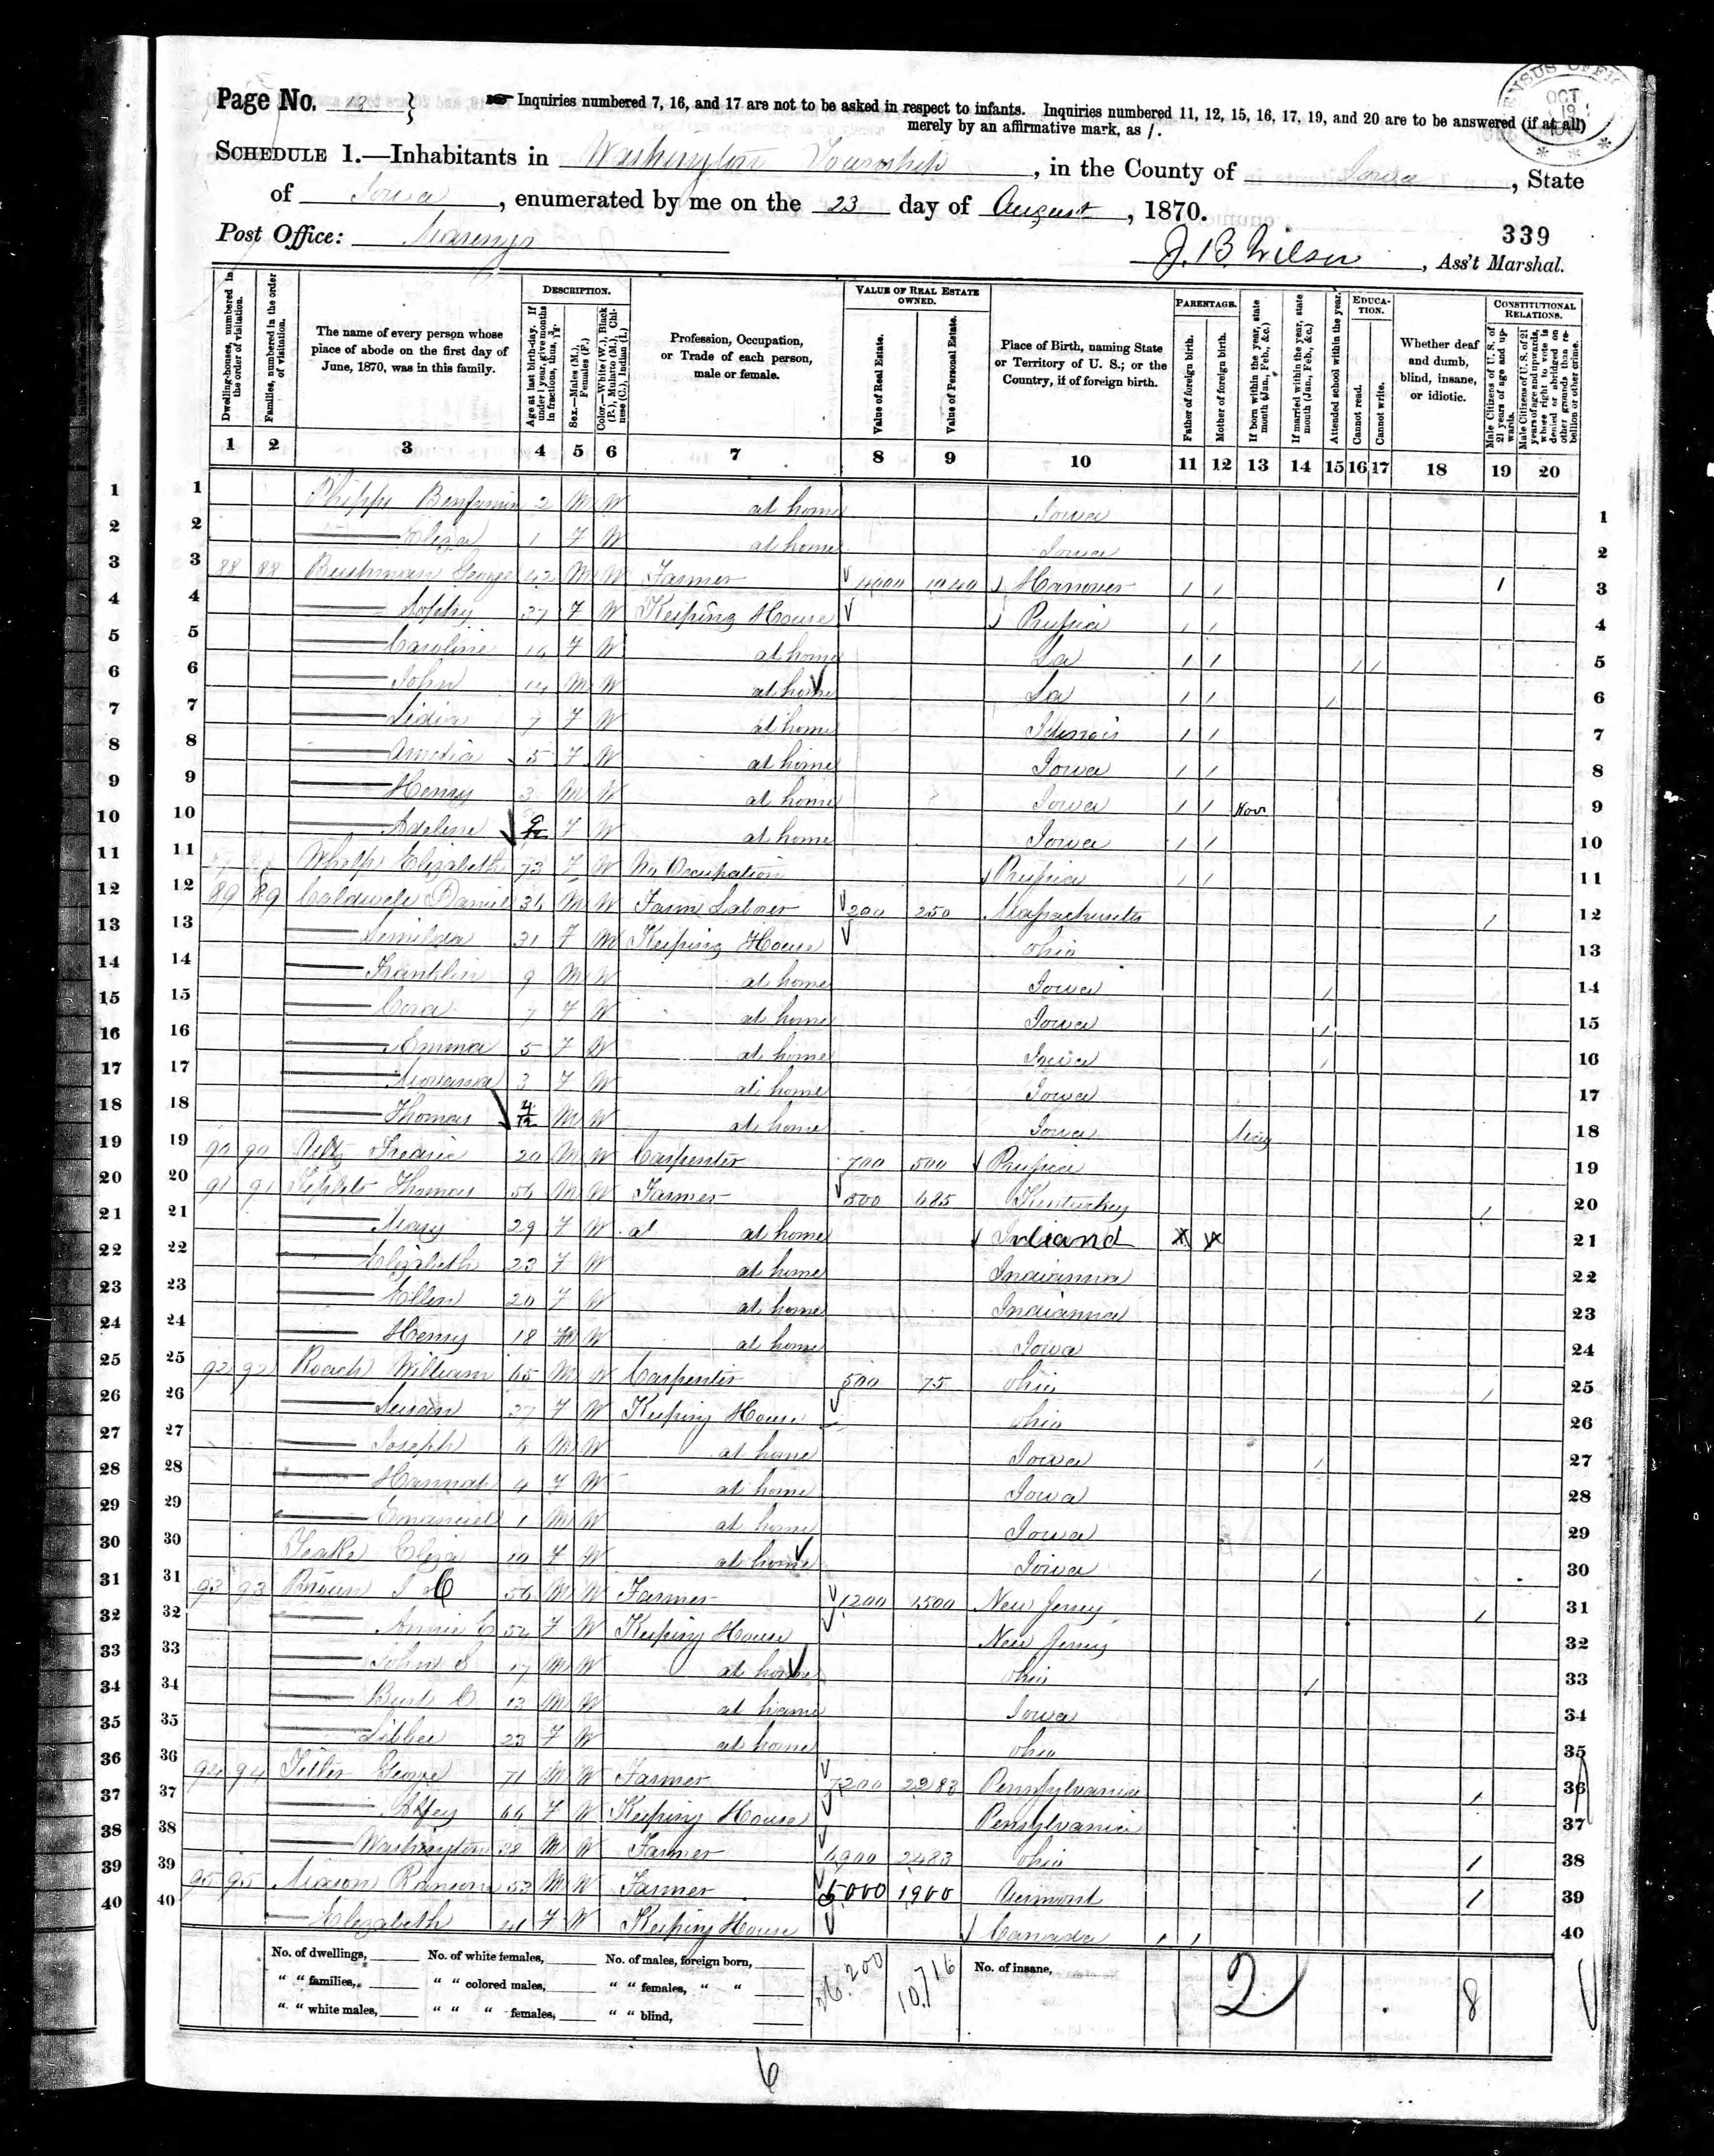 Page No. 13 }
Inquiries numbered 7, 16, and 17 are not to be asked in respect to infants. Inquiries numbered 11, 12, 15, 16, 17, 19, and 20 are to be answered (if at all)
merely by an affirmative mark, as /.
CENSUS OFFICE OCT 19
SCHEDULE 1.—Inhabitants in Washington Township, in the County of Iowa, State
of Iowa, enumerated by me on the 23 day of August, 1870.
339
Post Office: Marengo
J. B. Wilson, Ass't Marshal.
Dwelling-houses, numbered in the order of visitation.
Families, numbered in the order of visitation.
The name of every person whose place of abode on the first day of June, 1870, was in this family.
DESCRIPTION.
Age at last birth-day. If under 1 year, give months in fractions, thus, 3/12.
Sex.—Males (M.), Females (F.)
Color.—White (W.), Black (B.), Mulatto (M.), Chinese (C.), Indian (I.)
Profession, Occupation, or Trade of each person, male or female.
VALUE OF REAL ESTATE OWNED.
Value of Real Estate.
Value of Personal Estate.
Place of Birth, naming State or Territory of U. S.; or the Country, if of foreign birth.
PARENTAGE.
Father of foreign birth.
Mother of foreign birth.
If born within the year, state month (Jan., Feb., &c.)
If married within the year, state month (Jan., Feb., &c.)
Attended school within the year.
EDUCATION.
Cannot read.
Cannot write.
Whether deaf and dumb, blind, insane, or idiotic.
CONSTITUTIONAL RELATIONS.
Male Citizens of U. S. of 21 years of age and upwards.
Male Citizens of U. S. of 21 years of age and upwards, whose right to vote is denied or abridged on other grounds than rebellion or other crime.
1 2 3 4 5 6 7 8 9 10 11 12 13 14 15 16 17 18 19 20
1 Benjamin 2 M W at home Iowa 1
2 Eliza 1 F W at home Iowa 2
3 88 88 George 42 M W Farmer 4000 1040 Hanover / / / 3
4 Sophy 37 F W Keeping House Prussia / / 4
5 Caroline 16 F W at home La / / / / 5
6 John 14 M W at home La / / / 6
7 Lidia 7 F W at home Illinois / / 7
8 Amelia 5 F W at home Iowa / / 8
9 Henry 3 M W at home Iowa / / Nov 9
10 Adeline 9/12 F W at home Iowa / / 10
11 Elizabeth 73 F W No Occupation Prussia / / 11
12 89 89 Caldwell Daniel 36 M W Farm Laborer 200 250 Massachusetts / 12
13 31 F Keeping House Ohio 13
14 Franklin 9 M W at home Iowa / 14
15 Cora 7 F W at home Iowa / 15
16 Emma 5 F W at home Iowa / 16
17 3 F W at home Iowa 17
18 Thomas 4/12 M W at home Iowa 18
19 90 90 20 M W Carpenter 700 500 Prussia 19
20 91 91 Thomas 56 M W Farmer 500 685 Kentucky / 20
21 Mary 29 F W at at home Indiand X X 21
22 Elizabeth 23 F W at home Indianna 22
23 Ellen 20 F W at home Indianna 23
24 Henry 18 M W at home Iowa 24
25 92 92 Roach William 65 M W Carpenter 500 75 Ohio / 25
26 Susan 37 F W Keeping House Ohio 26
27 Joseph 6 M W at home Iowa / 27
28 Hannah 4 F W at home Iowa 28
29 Emanuel 1 M W at home Iowa 29
30 Eliza 10 F W at home Iowa / 30
31 93 93 Brown 56 M W Farmer 1200 1500 New Jersey / 31
32 Annie C 54 F W Keeping House New Jersey 32
33 John S 17 M W at home Ohio / 33
34 13 M W at home Iowa 34
35 Libbee 23 F W at home Ohio 35
36 94 94 George 71 M W Farmer 7200 2283 Pennsylvania / 36
37 66 F W Keeping House Pensylvania 37
38 Washington 38 M W Farmer 6900 2483 Ohio / 38
39 95 95 Ransom 53 M W Farmer 5000 1900 Vermont / 39
40 Elizabeth 41 F W Keeping House Canada / / 40
No. of dwellings, No. of white females, No. of males, foreign born, 26.200 10.716 No. of insane, 2 8
" " families, " " colored males, " " females, " "
" " white males, " " " females, " " blind,
6